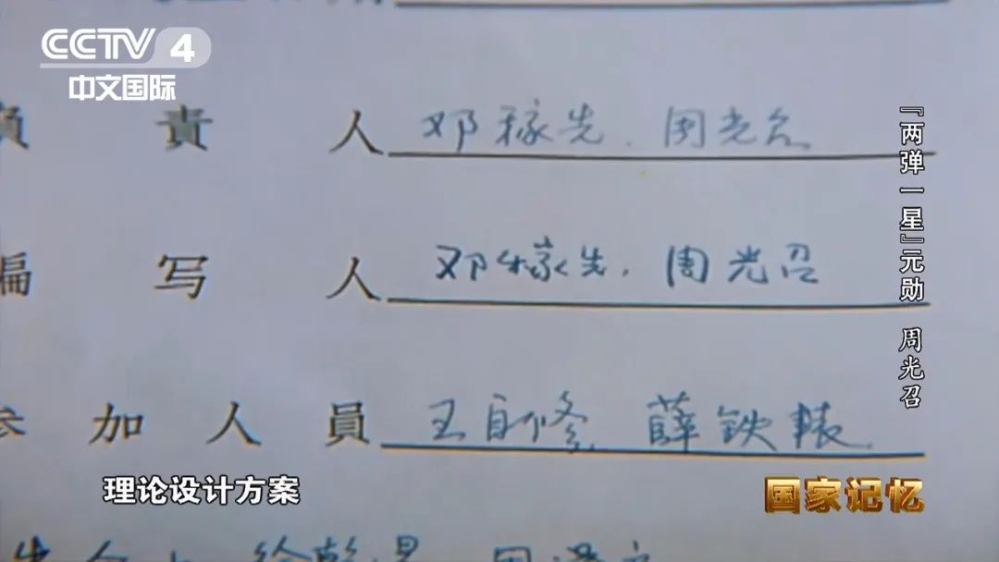 CCTV 4
中文国际
负責人 邓稼先、周光召
编写人 邓稼先、周光召
参加人員 王自修 薛铁辕
『两弹一星』元勋 周光召
理论设计方案
国家记忆